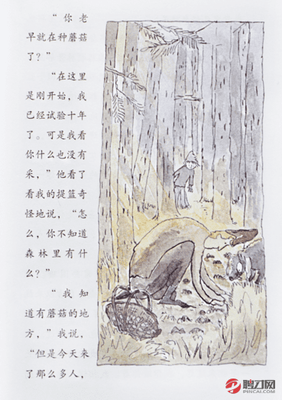 “你老
早就在种蘑菇
了？”
“在这里
是刚开始，我
已经试验十年
了。可是我看
你什么也没有
采，”他看了
看我的提篮奇
怪地说，“怎
么，你不知道
森林里有什
么？”
“我知
道有蘑菇的地
方，”我说，
“但是今天来
了那么多人，
PINCAI.COM